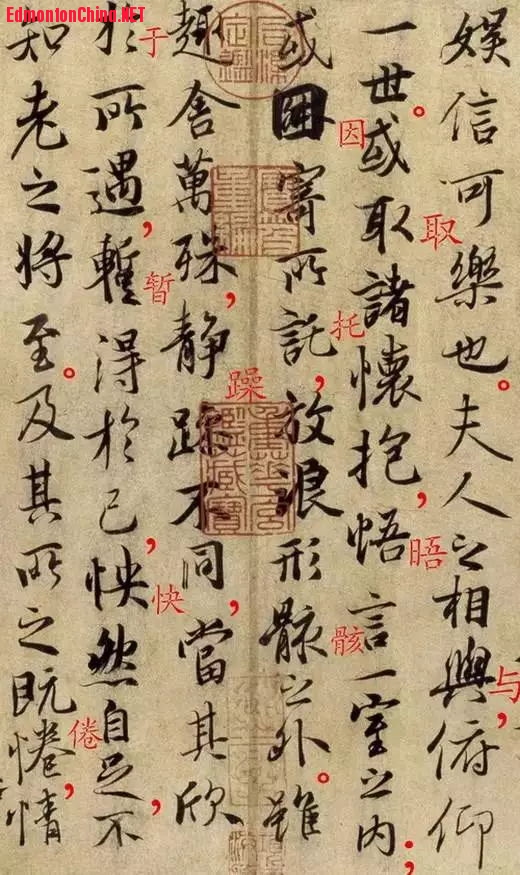 EdmontonChina.NET
娱信可樂也。夫人之相與，俯仰
与
一世。或取諸懷抱，悟言一室之内；
取
晤
或因寄所託，放浪形骸之外。雖
因
托
骸
趣舍萬殊，静躁不同，當其欣
躁
於所遇，暫得於己，怏然自足，不
于
暂
快
知老之將至。及其所之既惓，情
倦